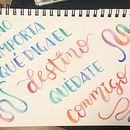 NO
IMPORTA
QUE DIGA EL
destino
QUEDATE
conmigo